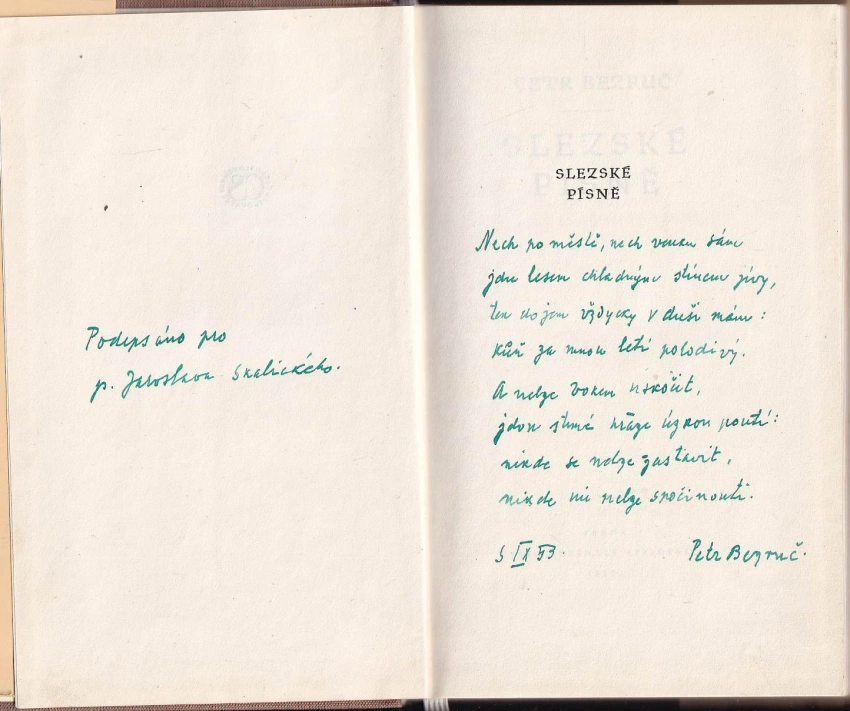 Podepsáno pro
p. Jaroslava Skalického.
PETR BEZRUČ
SLEZSKÉ
PÍSNĚ
SLEZSKÉ
PÍSNĚ
Nech po městě, nech venku sám
jdu lesem chladným stínem jívy,
ten dojem vždycky v duši mám:
kůň za mnou letí polodivý.
A nelze bokem uskočit,
jdou strmé hráze úzkou poutí:
nikde se nelze zastavit,
nikde mi nelze spočinouti.
5 IX 53
Petr Bezruč.